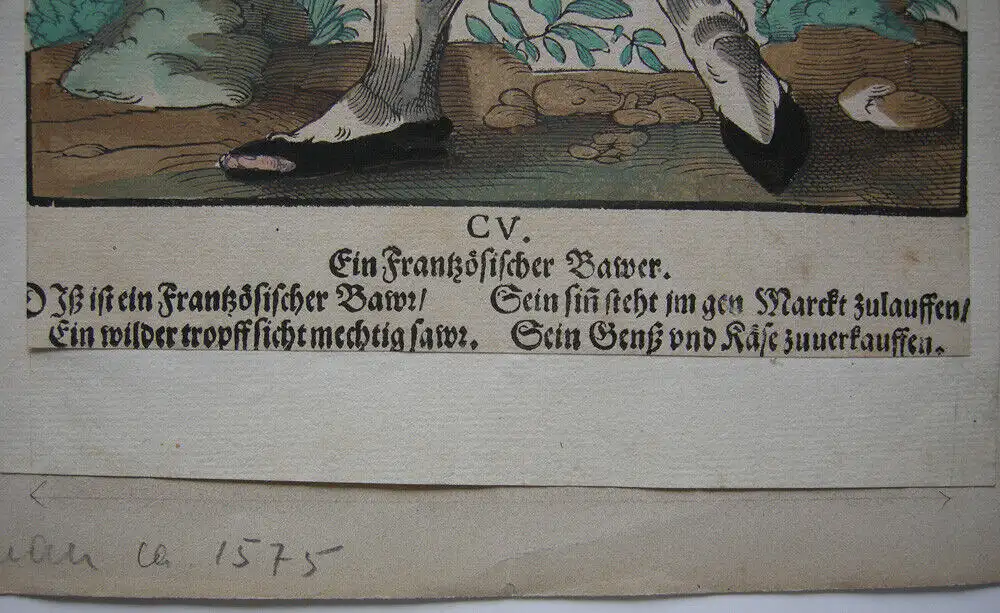 CV.
Ein Frantzösischer Bawer.
DJß ist ein Frantzösischer Bawr/
Ein wilder tropff sicht mechtig sawr.
Sein siñ steht jm gen Marckt zulauffen/
Sein Genß vnd Käse zuuerkauffen.
ca 1575